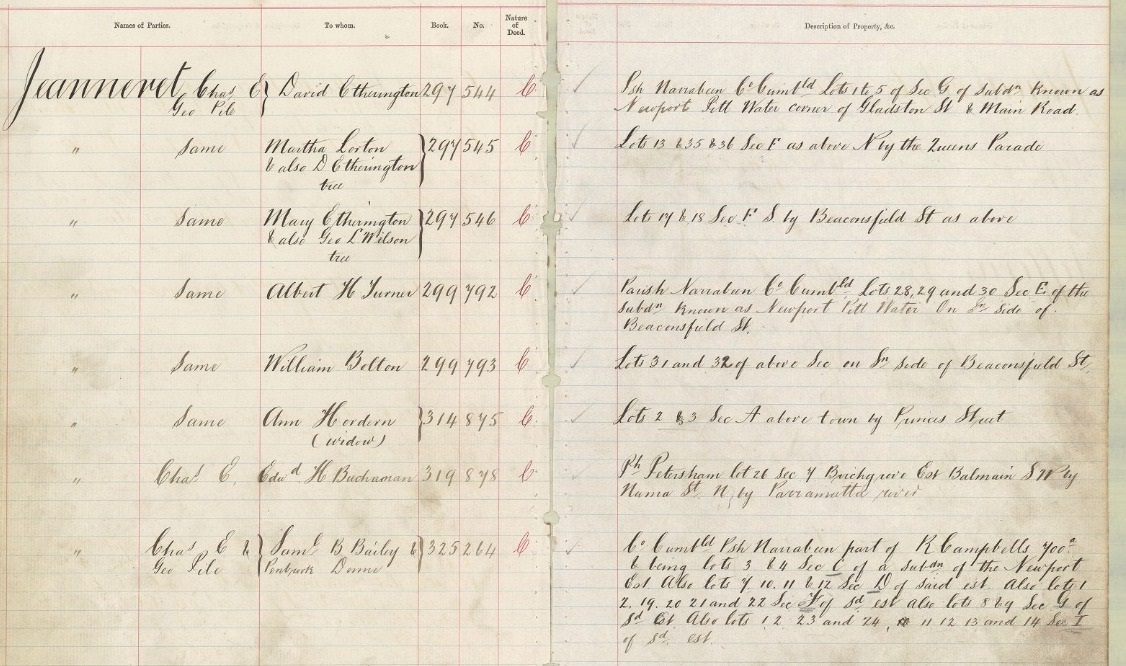 Names of Parties. To whom. Book. No. Nature of Deed. Description of Property, &c.
Jeanneret, Chas E } David Etherington 297 544 C Psh Narrabeen Co Cumbld Lots 1 to 5 of Sec G of Subdn known as
Geo Pile Newport Pitt Water corner of Gladston St & Main Road.
" Same Martha Lorton } 297 545 C Lots 13 & 35 & 36 Sec F as above N by the Queens Parade
& also D Etherington
tree
" Same Mary Etherington } 297 546 C Lots 17 & 18 Sec F S. by Beaconsfield St as above
& also Geo L Wilson
tree
" Same Albert H Turner 299 792 C Parish Narrabeen Co Cumbld Lots 28, 29 and 30 Sec E of the
Subdn known as Newport Pitt Water On Sn side of
Beaconsfield St.
" Same William Bolton 299 793 C Lots 31 and 32 of above Sec on Sn side of Beaconsfield St.
" Same Ann Hordern } 314 875 C Lots 2 & 3 Sec A above town by Princes Street
(widow)
" Chas E, Edwd H Buchanan 319 878 C Ph Petersham lot 26 Sec 7 Birchgrove Est Balmain SW by
Numa St. N, by Parramatta river
" Chas E & } Saml B Bailey & 325 264 C Co Cumbld Psh Narrabeen part of R Campbells 700a
Geo Pile & being lots 3 & 4 Sec C of a subdn of the Newport
Est Also lots 7. 10. 11 & 12 Sec D of said est. Also lots 1
2. 19. 20 21 and 22 Sec of sd est also lots 8 & 9 Sec G of
sd Est. Also lots 1 2 23 and 24, 11 12 13 and 14 Sec I
of sd est.